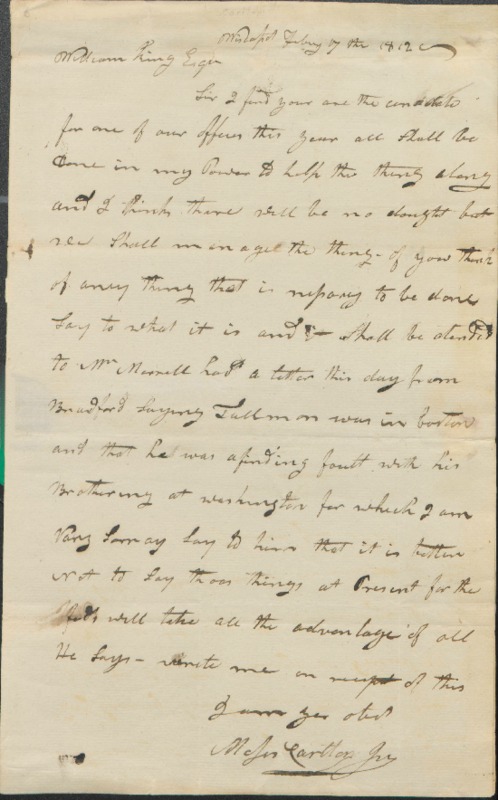 Wiscasst Febuy 17 the 1812
William King Esqr
Sir I find your are the candidate
for one of our offices this year all Shall be
done in my Power to help the thing along
and I think there will be no dought but
we Shall manage the thing. if you think
of aney thing that is nessary to be done
Say to what it is and it Shall be atended
to Mr Morrell had a letter this day from
Bradford Saying Tallmon was in boston
and that he was afinding fault with his
Brothering at washington for which I am
Vary Sorray Say to him that it is better
not to Say thoos things at Present for the
feds will take all the advantage of all
He Says - write me on recept of this
I am yor obet
Moses Carlton Jr